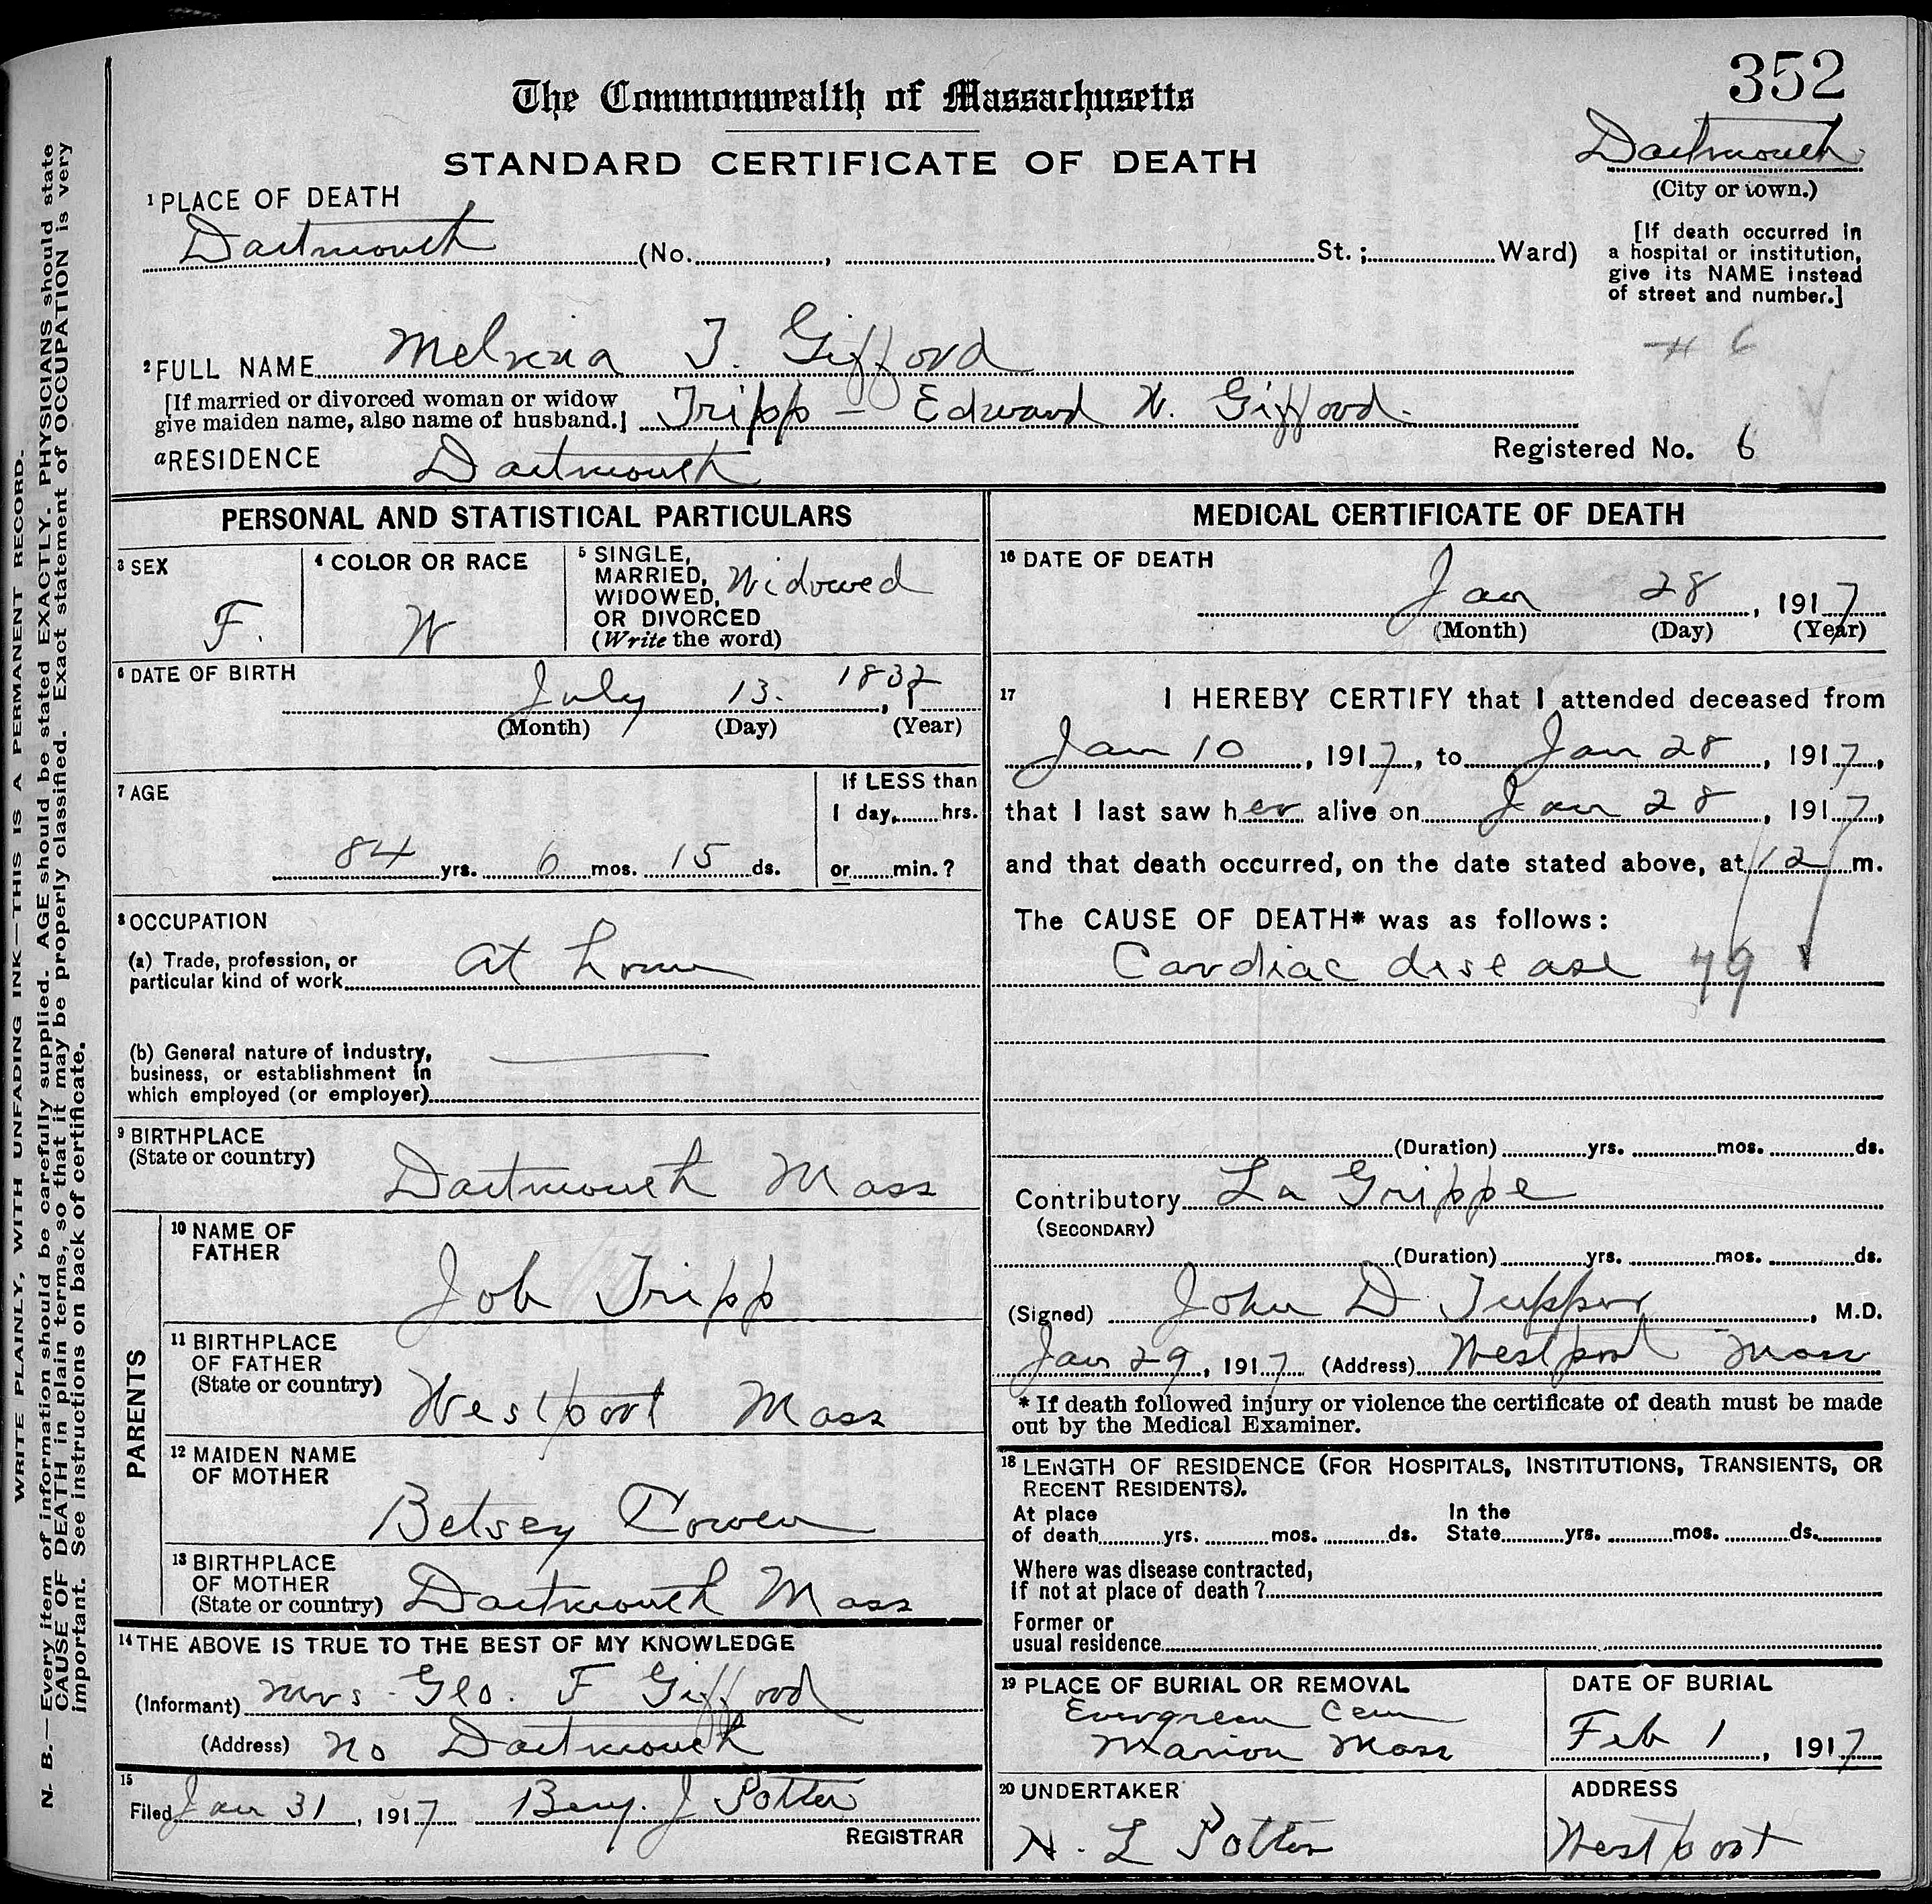 352
The Commonwealth of Massachusetts
STANDARD CERTIFICATE OF DEATH
Dartmouth
(City or town.)
1 PLACE OF DEATH
Dartmouth (No. , St.; Ward)
[If death occurred in
a hospital or institution,
give its NAME instead
of street and number.]
6
2 FULL NAME Melvina T. Gifford
[If married or divorced woman or widow
give maiden name, also name of husband.] Tripp - Edward W. Gifford.
a RESIDENCE Dartmouth
Registered No. 6
PERSONAL AND STATISTICAL PARTICULARS
3 SEX
F.
4 COLOR OR RACE
W
5 SINGLE,
MARRIED,
WIDOWED,
OR DIVORCED
(Write the word)
Widowed
6 DATE OF BIRTH
July 13. , 1832
(Month) (Day) (Year)
7 AGE
84 yrs. 6 mos. 15 ds.
If LESS than
1 day, hrs.
or min.?
8 OCCUPATION
(a) Trade, profession, or
particular kind of work at home
(b) General nature of industry,
business, or establishment in
which employed (or employer)
9 BIRTHPLACE
(State or country)
Dartmouth Mass
PARENTS
10 NAME OF
FATHER
Job Tripp
11 BIRTHPLACE
OF FATHER
(State or country)
Westport Mass
12 MAIDEN NAME
OF MOTHER
Betsey Cowen
13 BIRTHPLACE
OF MOTHER
(State or country) Dartmouth Mass
14 THE ABOVE IS TRUE TO THE BEST OF MY KNOWLEDGE
(Informant) Mrs Geo. F Gifford
(Address) No Dartmouth
15
Filed Jan 31, 1917 Benj. J Potter
REGISTRAR
MEDICAL CERTIFICATE OF DEATH
16 DATE OF DEATH
Jan 28, 1917
(Month) (Day) (Year)
17 I HEREBY CERTIFY that I attended deceased from
Jan 10, 1917, to Jan 28, 1917,
that I last saw her alive on Jan 28, 1917,
and that death occurred, on the date stated above, at 12 m.
The CAUSE OF DEATH* was as follows:
Cardiac disease 79
(Duration) yrs. mos. ds.
Contributory La Grippe
(SECONDARY)
(Duration) yrs. mos. ds.
(Signed) John D Tupper, M.D.
Jan 29, 1917 (Address) Westport Mass
* If death followed injury or violence the certificate of death must be made
out by the Medical Examiner.
18 LENGTH OF RESIDENCE (FOR HOSPITALS, INSTITUTIONS, TRANSIENTS, OR
RECENT RESIDENTS).
At place
of death yrs. mos. ds.
In the
State yrs. mos. ds.
Where was disease contracted,
If not at place of death?
Former or
usual residence
19 PLACE OF BURIAL OR REMOVAL
Evergreen Cem
Marion Mass
DATE OF BURIAL
Feb 1, 1917
20 UNDERTAKER
N. L Potter
ADDRESS
Westport
WRITE PLAINLY, WITH UNFADING INK—THIS IS A PERMANENT RECORD.
N. B.—Every item of information should be carefully supplied. AGE should be stated EXACTLY. PHYSICIANS should state
CAUSE OF DEATH in plain terms, so that it may be properly classified. Exact statement of OCCUPATION is very
important. See instructions on back of certificate.